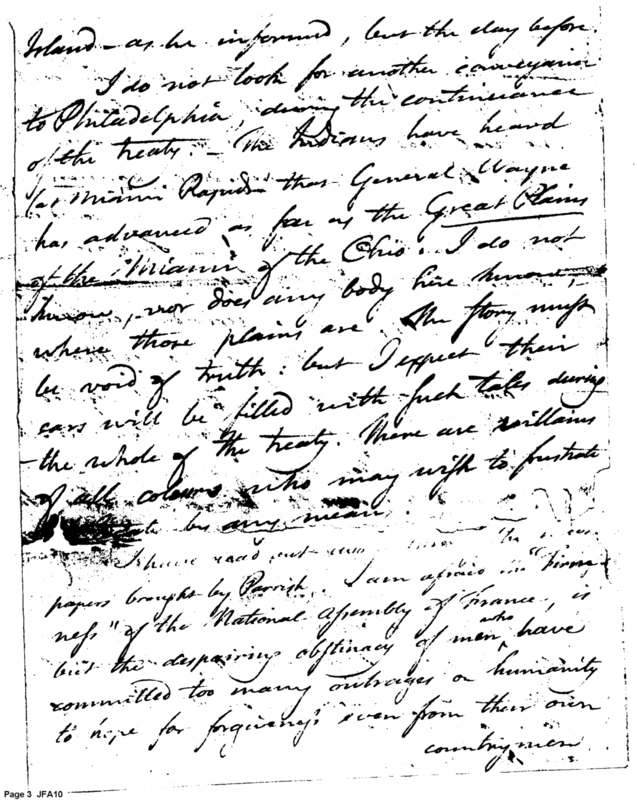 Island – as he informed, but the day before.
I do not look for another conveyance
to Philadelphia, during the continuance
of the treaty. – The Indians have heard
(at Miami Rapids) that General Wayne
has advanced as far as the Great Plains
of the Miami of the Ohio. I do not
know, nor does any body here know,
where those plains are. The story must
be void of truth: but I expect their
ears will be filled with such tales during
the whole of the treaty. There are villains
of all colours who may wish to frustrate
by any mean.
I have read The news-
papers brought by Parrish. I am afraid the "firm-
ness" of the National Assembly of France, is
but the despairing obstinacy of men who have
committed too many outrages on humanity
to hope for forgiveness even from their own
countrymen
Page 3 JFA10